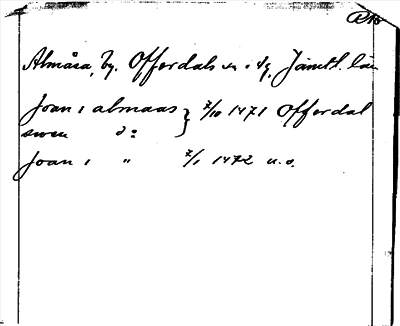 Almåsa, by. Offerdals sn. Jämtl. län
Joan i almaas } 7/10 1471 Offerdal
swen d:o
Joan i " 7/1 1472 u.s.